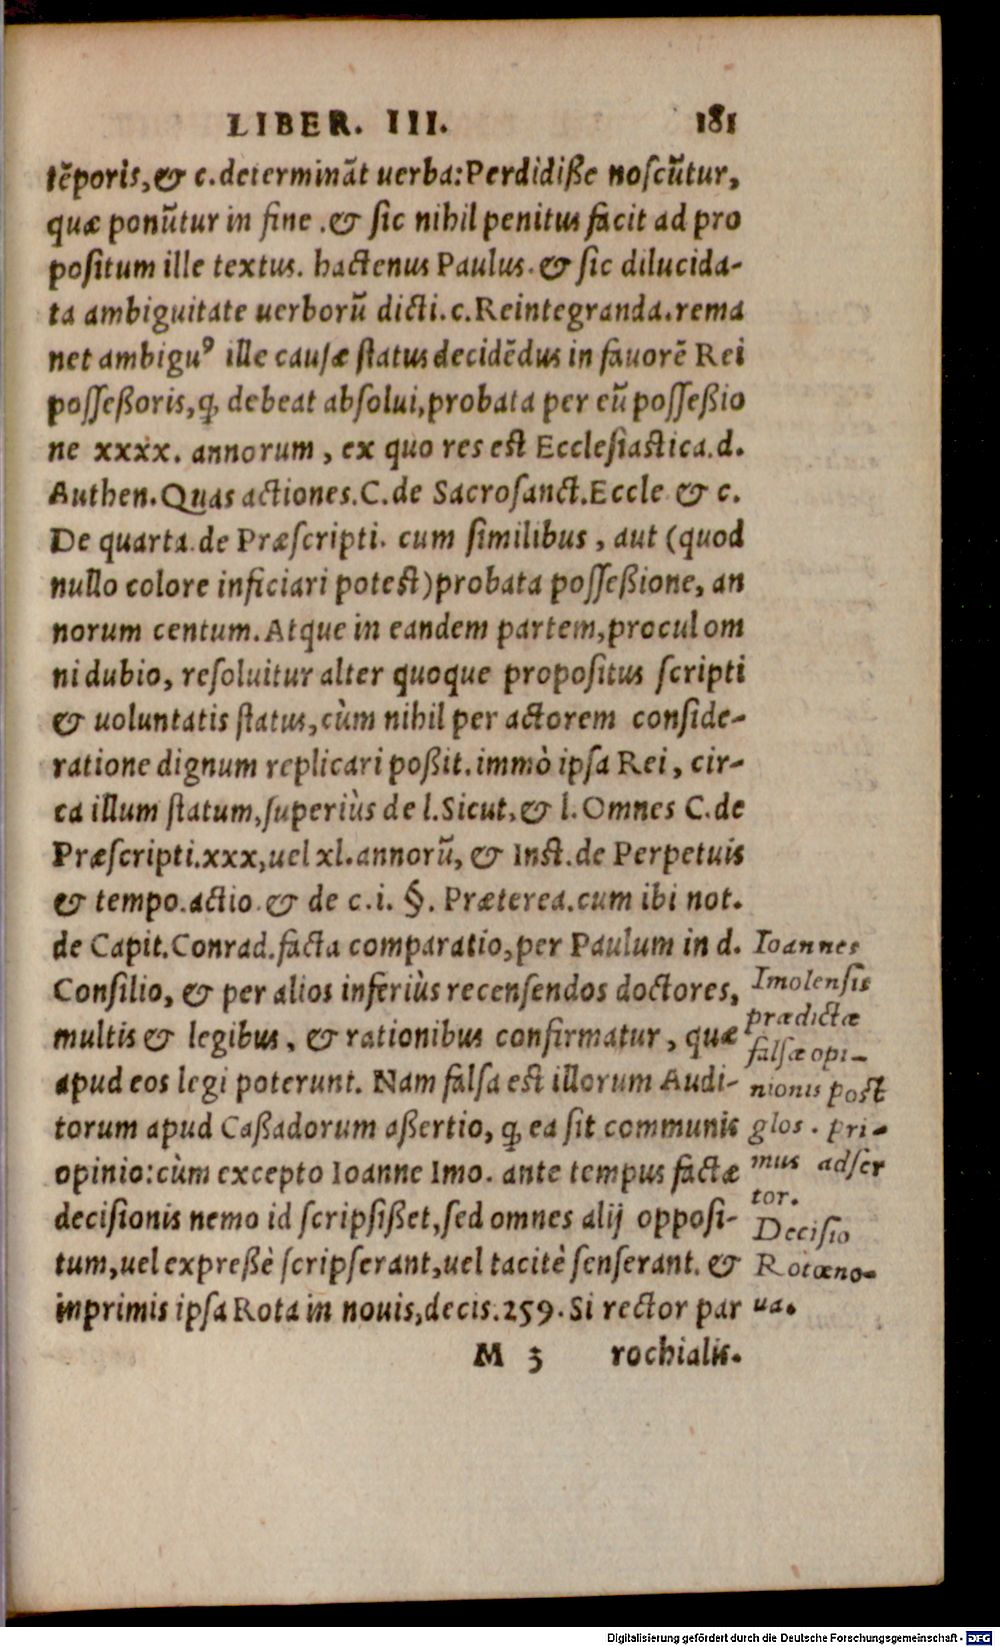 LIBER. III. 181
tẽporis, & c. determinãt uerba: Perdidiße noſcũtur,
quæ ponũtur in fine. & ſic nihil penitus facit ad pro
poſitum ille textus. hactenus Paulus. & ſic dilucida-
ta ambiguitate uerborũ dicti. c. Reintegranda. rema
net ambiguꝰ ille cauſæ ſtatus decidẽdus in fauorẽ Rei
poſſeßoris, ꝙ debeat abſolui, probata per eũ poſſeßio
ne xxxx. annorum, ex quo res eſt Eccleſiaſtica. d.
Authen. Quas actiones. C. de Sacroſanct. Eccle & c.
De quarta. de Præſcripti. cum ſimilibus, aut (quod
nullo colore inficiari poteſt) probata poſſeßione, an
norum centum. Atque in eandem partem, procul om
ni dubio, reſoluitur alter quoque propoſitus ſcripti
& uoluntatis ſtatus, cùm nihil per actorem conſide-
ratione dignum replicari poßit. immò ipſa Rei, cir-
ca illum ſtatum, ſuperiùs de l. Sicut, & l. Omnes C. de
Præſcripti. xxx, uel xl. annorũ, & Inſt. de Perpetuis
& tempo. actio. & de c. i. §. Præterea. cum ibi not.
de Capit. Conrad. facta comparatio, per Paulum in d.
Conſilio, & per alios inferiùs recenſendos doctores,
multis & legibus, & rationibus confirmatur, quæ
apud eos legi poterunt. Nam falſa eſt illorum Audi-
torum apud Caßadorum aßertio, ꝙ ea ſit communis
opinio: cùm excepto Ioanne Imo. ante tempus factæ
deciſionis nemo id ſcripſißet, ſed omnes alij oppoſi-
tum, uel expreßè ſcripſerant, uel tacitè ſenſerant. &
inprimis ipſa Rota in nouis, decis. 259. Si rector par
M 3 rochialis.
Ioannes
Imolenſis
prædictæ
falſæ opi-
nionis poſt
glos. pri-
mus adſer
tor.
Deciſio
Rotæ no-
ua.
Digitalisierung gefördert durch die Deutsche Forschungsgemeinschaft - DFG